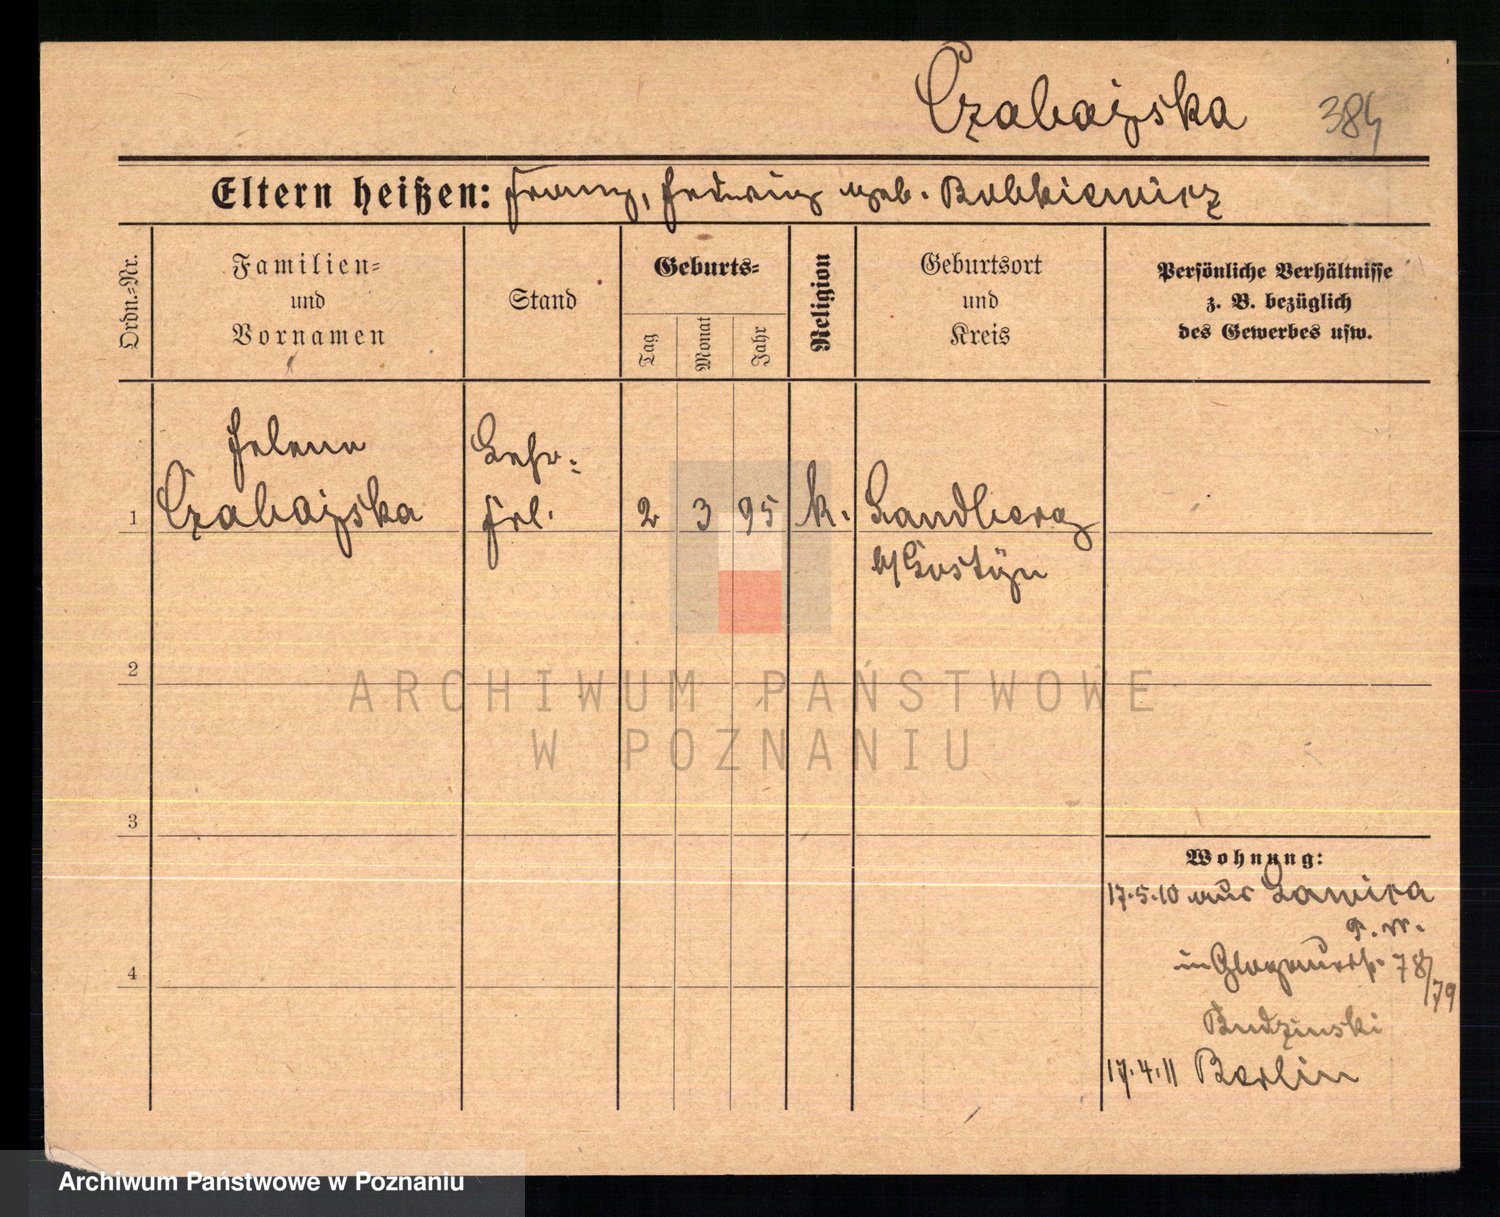 Czabajska 384
Eltern heißen: Franz, Hedwig geb. Bobkiewicz
Ordn.-Nr.
Familien-
und
Vornamen
Stand
Geburts-
Tag
Monat
Jahr
Religion
Geburtsort
und
Kreis
Persönliche Verhältnisse
z. B. bezüglich
des Gewerbes usw.
Helena Lehr-
1 Czabajska frl. 2 3 95 k. Sandberg
b/ Gostyn
2
ARCHIWUM PAŃSTWOWE
W POZNANIU
3
Wohnung:
17.5.10 aus Lawica
P. W.
4
in Glogauerstr. 78/79
Budzinski
17.4.11 Berlin
Archiwum Państwowe w Poznaniu